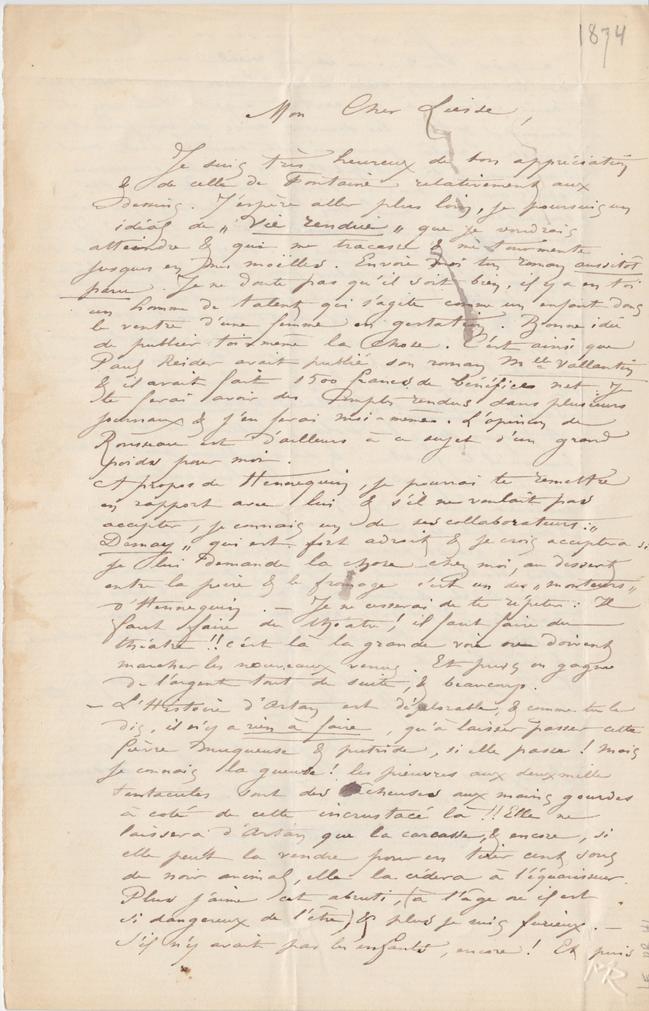 1874
Mon Cher Liesse,
Je suis très heureux de ton appréciation
& de celle de Fontaine relativement aux
dessins. J'espère aller plus loin, je poursuis un
idéal de „Vie rendue„ que je voudrais
atteindre & qui me tracasse & me tourmente
jusques en mes moëlles. Envoie moi ton roman aussitôt
paru. Je ne doute pas qu'il soit bien, il y a en toi
un homme de talent qui s'agite comme un enfant dans
le ventre d'une femme en gestation. Bonne idée
de publier toi-même la chose. C'est ainsi que
Paul Heider avait publié son roman Mlle Vallantin
& il avait fait 1500 francs de bénéfices net. Je
te ferai avoir des Comptes rendus dans plusieurs
journaux & j'en ferai moi-même. L'opinion de
Rousseau est d'ailleurs à ce sujet d'un grand
poids pour moi.
A propos de Hennequin, je pourrai te remettre
en rapport avec lui & s'il ne voulait pas
accepter, je connais un de ses collaborateurs: „
Demay„ qui est fort adroit & je crois acceptera si
je lui demande la chose chez moi, au dessert
entre la poire & le fromage c'est un des „monteurs„
d'Hennequin. — Je ne cesserai de te répéter: Il
faut faire du théatre! il faut faire du
théatre!! c'est là la grande voie où doivent
marcher les nouveaux venus. Et puis on gagne
de l'argent tout de suite, & beaucoup.
— L'Histoire d'Artan est déplorable, & comme tu le
dis, il n'y a rien à faire, qu'à laisser passer cette
fièvre muqueuse & putride, si elle passe! Mais
je connais la gueuse! les pieuvres aux deux mille
tentacules sont des lâcheuses aux mains gourdes
à coté de cette incrustacé là!! Elle ne
laissera d'Artan que la carcasse, & encore, si
elle peutt la vendre pour en tirer cent sous
de noir animal, elle la cédera à l'équarisseur.
Plus j'aime cet abruti, (à l'âge où il est
si dangereux de l'être) & plus je suis furieux. —
S'il n'y avait pas les enfants, encore! Et puis